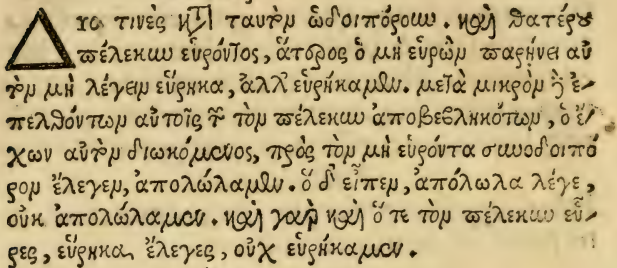 Δύο τινὲς κατὰ ταυτὸν ὡδοιπόρουν. καὶ θατέρου
πέλεκυν εὑρόντος, ἅτερος ὁ μὴ εὑρὼν παρῄνει αὐ
τὸν μὴ λέγειν εὕρηκα, ἀλλ' εὑρήκαμεν. μετὰ μικρὸν δὲ ἐ-
πελθόντων αὐτοῖς τῶν τὸν πέλεκυν ἀποβεβληκότων, ὁ ἔ-
χων αὐτὸν διωκόμενος, πρὸς τὸν μὴ εὑρόντα συνοδοιπό
ρον ἔλεγεν, ἀπολώλαμεν. ὁ δ' εἶπεν, ἀπόλωλα λέγε,
οὐκ ἀπολώλαμεν. καὶ γὰρ καὶ ὅτε τὸν πέλεκυν εὗ-
ρες, εὕρηκα, ἔλεγες, οὐχ εὑρήκαμεν.